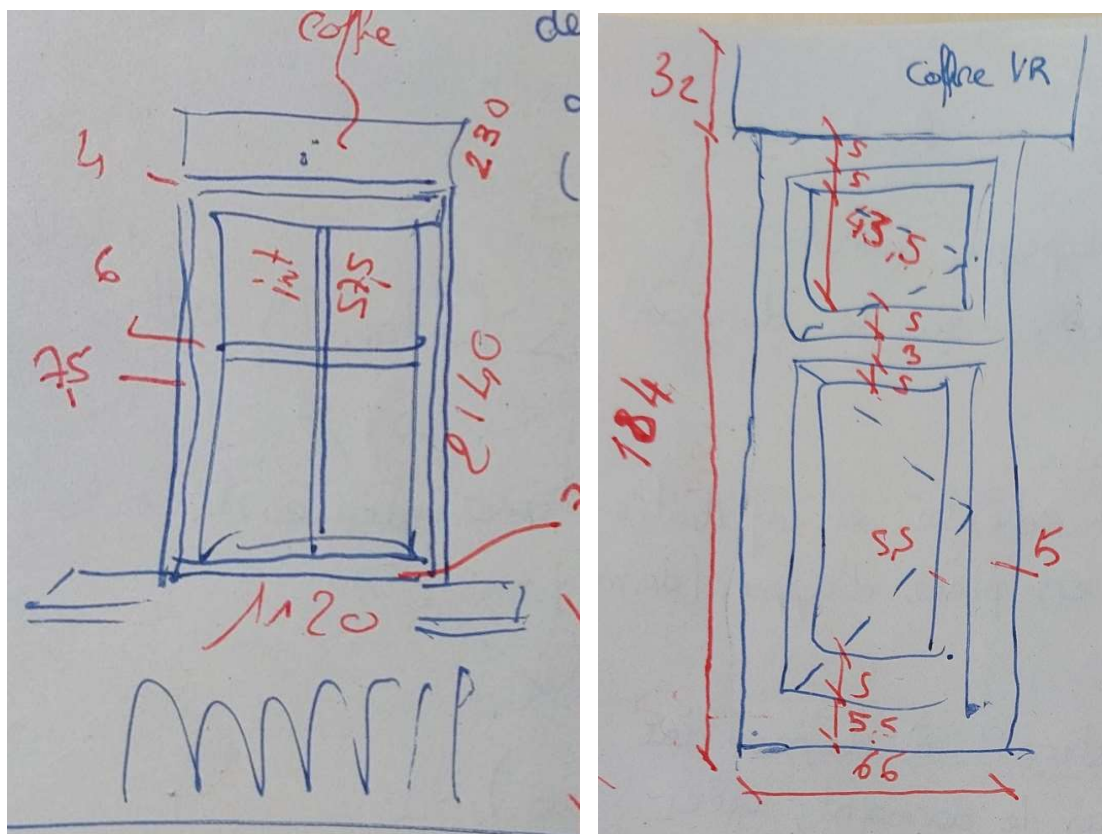 coffre
de
230
4
6
int
57,5
7,5
2140
1120
32
Coffre VR
5
5
43,5
5
3
5
184
5,5
5
5
5,5
66